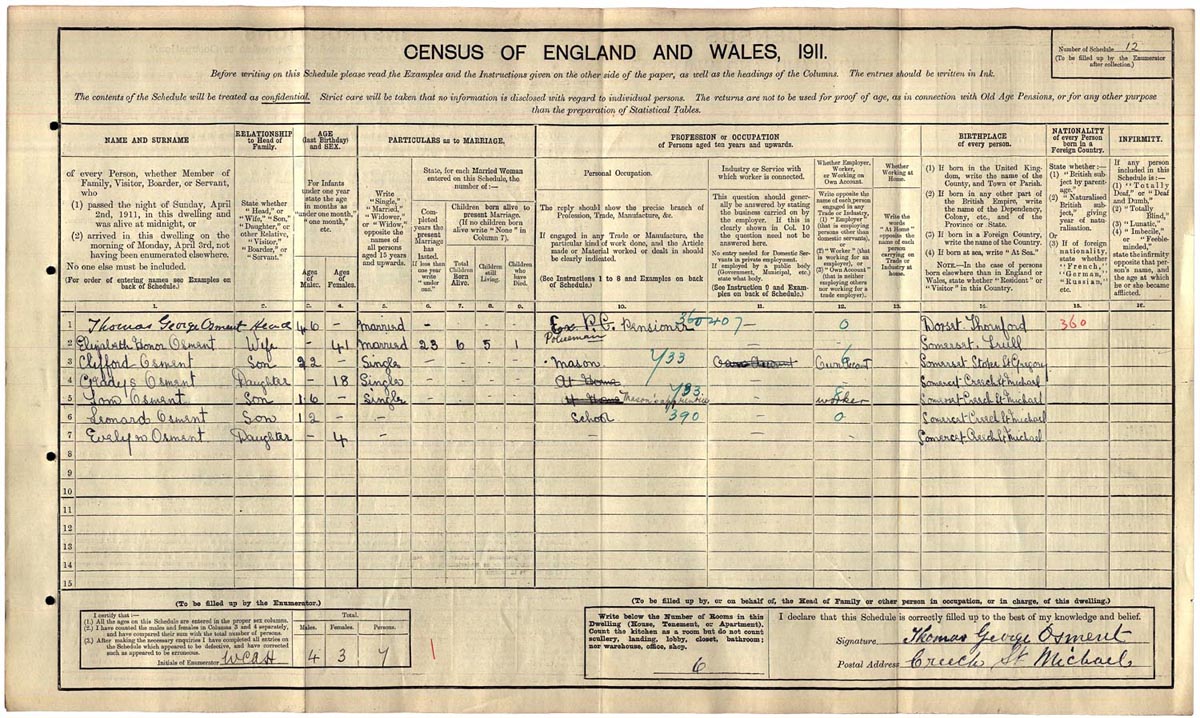 CENSUS OF ENGLAND AND WALES, 1911.
Number of Schedule 12
(To be filled up by the Enumerator
after collection.)
Before writing on this Schedule please read the Examples and the Instructions given on the other side of the paper, as well as the headings of the Columns. The entries should be written in Ink.
The contents of the Schedule will be treated as confidential. Strict care will be taken that no information is disclosed with regard to individual persons. The returns are not to be used for proof of age, as in connection with Old Age Pensions, or for any other purpose
than the preparation of Statistical Tables.
NAME AND SURNAME
of every Person, whether Member of
Family, Visitor, Boarder, or Servant,
who
(1) passed the night of Sunday, April
2nd, 1911, in this dwelling and
was alive at midnight, or
(2) arrived in this dwelling on the
morning of Monday, April 3rd, not
having been enumerated elsewhere.
No one else must be included.
(For order of entering names see Examples on
back of Schedule.)
RELATIONSHIP
to Head of
Family.
State whether
"Head," or
"Wife," "Son,"
"Daughter," or
other Relative,
"Visitor,"
"Boarder," or
"Servant."
AGE
(last Birthday)
and SEX.
For Infants
under one year
state the age
in months as
"under one month,"
"one month,"
etc.
Ages
of
Males.
Ages
of
Females.
PARTICULARS as to MARRIAGE.
Write
"Single,"
"Married,"
"Widower,"
or "Widow,"
opposite the
names of
all persons
aged 15 years
and upwards.
State, for each Married Woman
entered on this Schedule, the
number of:—
Completed
years the
present
Marriage
has
lasted.
If less than
one year
write
"under
one."
Children born alive to
present Marriage.
(If no children born
alive write "None" in
Column 7).
Total
Children
Born
Alive.
Children
still
Living.
Children
who
have
Died.
PROFESSION or OCCUPATION
of Persons aged ten years and upwards.
Personal Occupation.
The reply should show the precise branch of
Profession, Trade, Manufacture, &c.
If engaged in any Trade or Manufacture, the
particular kind of work done, and the Article
made or Material worked or dealt in should
be clearly indicated.
(See Instructions 1 to 8 and Examples on back
of Schedule.)
Industry or Service with
which worker is connected.
This question should gener-
ally be answered by stating
the business carried on by
the employer. If this is
clearly shown in Col. 10
the question need not be
answered here.
No entry needed for Domestic Ser-
vants in private employment.
If employed by a public body
(Government, Municipal, etc.)
state what body.
(See Instruction 9 and Exam-
ples on back of Schedule.)
Whether Employer,
Worker,
or Working on
Own Account.
Write opposite
the name of each
person engaged in any
Trade or Industry,
(1) "Employer"
(that is employing
persons other than
domestic servants),
or
(2) "Worker" (that
is working for an
employer), or
(3) "Own Account"
(that is neither
employing others
nor working for a
trade employer).
Whether
Working at
Home.
Write the
words
"At Home"
opposite the
name of each
person
carrying on
Trade or
Industry at
home.
BIRTHPLACE
of every person.
(1) If born in the United King-
dom, write the name of the
County, and Town or Parish.
(2) If born in any other part of
the British Empire, write
the name of the Dependency,
Colony, etc., and of the
Province or State.
(3) If born in a Foreign Country,
write the name of the Country.
(4) If born at sea, write "At Sea."
NOTE.—In the case of persons
born elsewhere than in England or
Wales, state whether "Resident" or
"Visitor" in this Country.
NATIONALITY
of every Person
born in a
Foreign Country.
State whether :—
(1) "British
subject by parent-
age."
(2) "Naturalised
British sub-
ject," giving
year of natu-
ralisation.
Or
(3) If of foreign
nationality,
state whether
"French,"
"German,"
"Russian,"
etc.
INFIRMITY.
If any person
included in this
Schedule is :—
(1) "Totally
Deaf," or "Deaf
and Dumb,"
(2) "Totally
Blind,"
(3) "Lunatic,"
(4) "Imbecile,"
or "Feeble-
minded,"
state the infirmity
opposite that per-
son's name, and
the age at which
he or she became
afflicted.
2. 3. 4. 5. 6. 7. 8. 9. 10. 11. 12. 13. 14. 15. 16.
1 Thomas George Osment Head 46 — Married - - - - Ex P.C. Pensioner 360 407 — 0 Dorset Thornford 360
Policeman
2 Elizabeth Honor Osment Wife — 41 Married 23 6 5 1 — — — Somerset.
3 Clifford Osment Son 22 — Single Mason 433 Own Account Own Account Somerset Stoke St Gregory
4 Gladys Osment Daughter — 18 Single At Home — Somerset Creech St Michael
5 Tom Osment Son 16 — Single At Home Mason's apprentice 433 worker Somerset Creech St Michael
6 Leonard Osment Son 12 — - School 390 0 Somerset Creech St Michael
7 Evelyn Osment Daughter — 4 — — — Somerset Creech St Michael
8
9
10
11
12
13
14
15
(To be filled up by the Enumerator.)
I certify that:—
(1.) All the ages on this Schedule are entered in the proper sex columns.
(2.) I have counted the males and females in Columns 3 and 4 separately,
and have compared their sum with the total number of persons.
(3.) After making the necessary enquiries I have completed all entries on
the Schedule which appeared to be defective, and have corrected
such as appeared to be erroneous.
Initials of Enumerator
Total.
Males. Females. Persons.
4 3 7
(To be filled up by, or on behalf of, the Head of Family or other person in occupation, or in charge, of this dwelling.)
Write below the Number of Rooms in this
Dwelling (House, Tenement, or Apartment).
Count the kitchen as a room but do not count
scullery, landing, lobby, closet, bathroom;
nor warehouse, office, shop.
6
I declare that this Schedule is correctly filled up to the best of my knowledge and belief.
Signature Thomas George Osment
Postal Address Creech St Michael